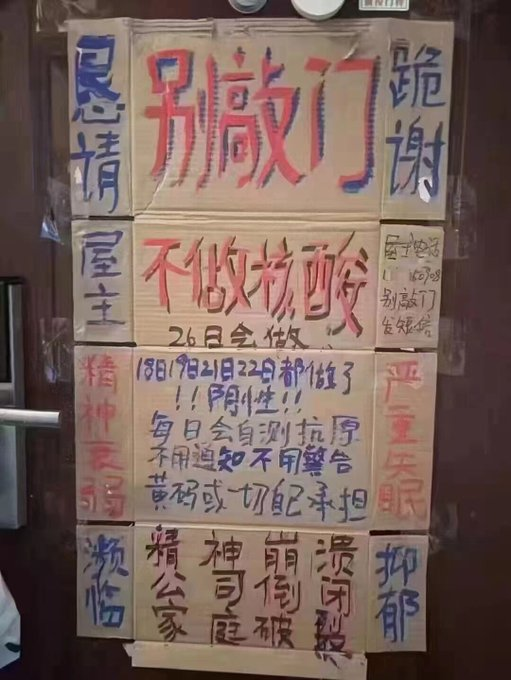 恳请
别敲门
跪谢
屋主
不做核酸
26日会做
屋主电话
别敲门
发短信
精神衰弱
18日19日21日22日都做了
!!阴性!!
每日会自测抗原
不用通知不用警告
黄码或一切自己承担
严重失眠
濒临
精神崩溃
公司倒闭
家庭破裂
抑郁